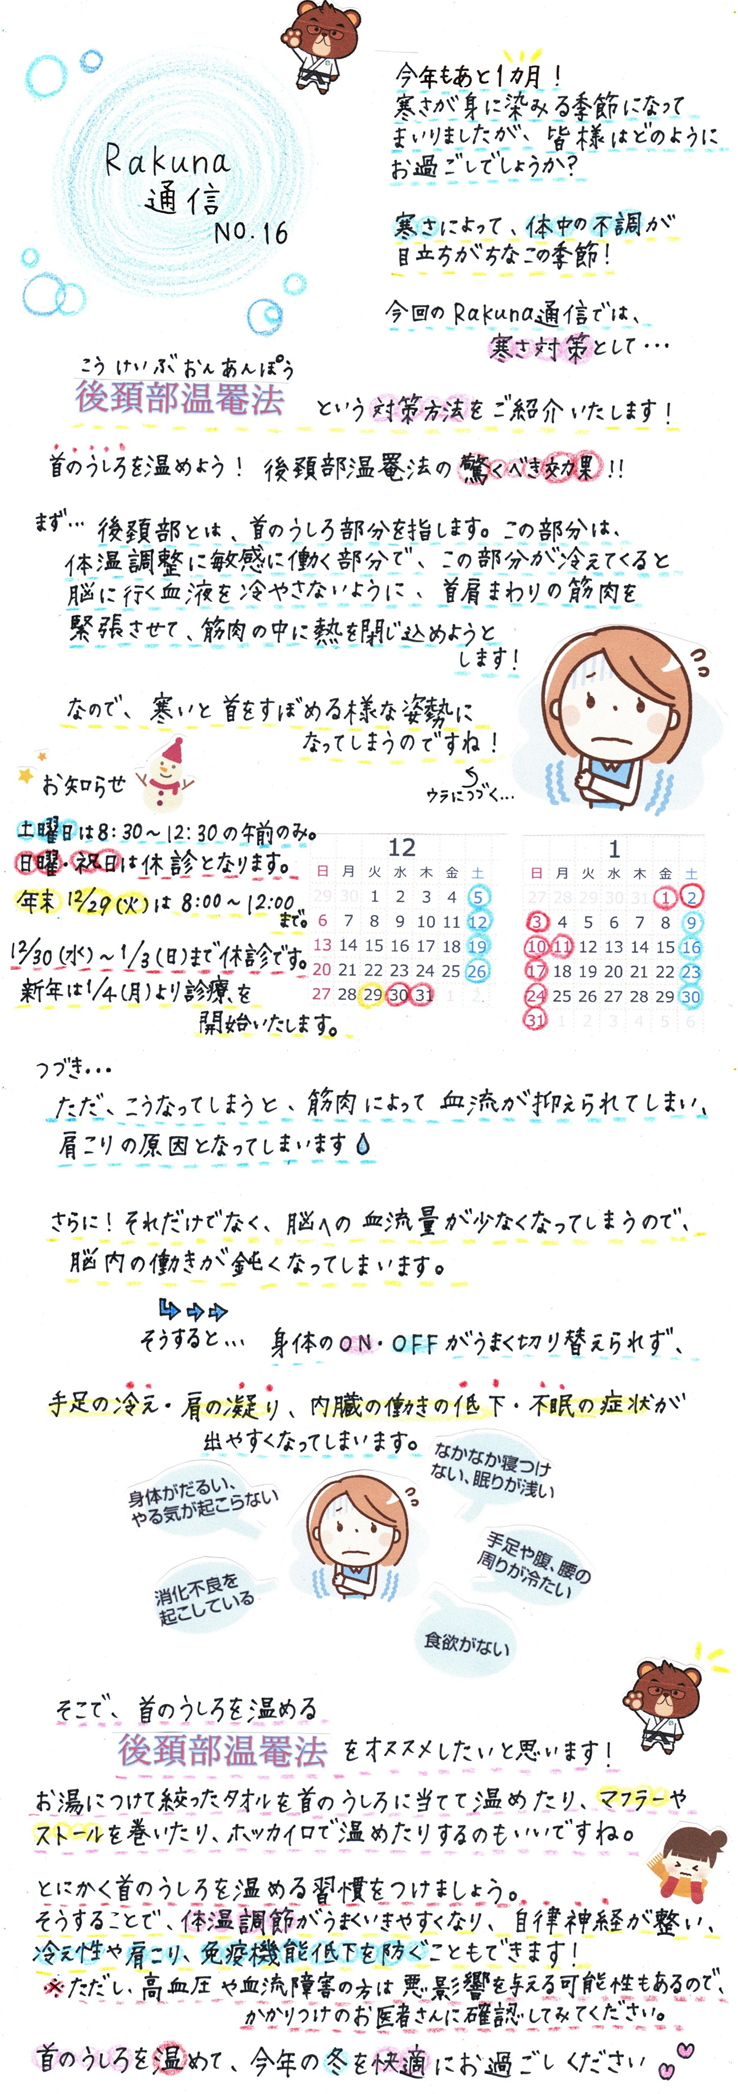 Rakuna
通信
NO.16
今年もあと1カ月！
寒さが身に染みる季節になって
まいりましたが、皆様はどのように
お過ごしでしょうか？
寒さによって、体中の不調が
目立ちがちなこの季節！
今回のRakuna通信では、
寒さ対策として…
こうけいぶおんあんぽう
後頚部温罨法
という対策方法をご紹介いたします！
首のうしろを温めよう！ 後頚部温罨法の驚くべき効果!!
まず… 後頚部とは、首のうしろ部分を指します。この部分は、
体温調整に敏感に働く部分で、この部分が冷えてくると
脳に行く血液を冷やさないように、首肩まわりの筋肉を
緊張させて、筋肉の中に熱を閉じ込めようと
します！
なので、寒いと首をすぼめる様な姿勢に
なってしまうのですね！
ウラにつづく…
お知らせ
土曜日は8:30～12:30の午前のみ。
日曜・祝日は休診となります。
年末 12/29(火)は 8:00～12:00
まで。
12/30(水)～1/3(日)まで休診です。
新年は1/4(月)より診療を
開始いたします。
12
日 月 火 水 木 金 土
29 30 1 2 3 4 5
6 7 8 9 10 11 12
13 14 15 16 17 18 19
20 21 22 23 24 25 26
27 28 29 30 31 1 2
1
日 月 火 水 木 金 土
27 28 29 30 31 1 2
3 4 5 6 7 8 9
10 11 12 13 14 15 16
17 18 19 20 21 22 23
24 25 26 27 28 29 30
31 1 2 3 4 5 6
つづき…
ただ、こうなってしまうと、筋肉によって血流が抑えられてしまい、
肩こりの原因となってしまいます
さらに！それだけでなく、脳への血流量が少なくなってしまうので、
脳内の働きが鈍くなってしまいます。
そうすると… 身体のON・OFFがうまく切り替えられず、
手足の冷え・肩の凝り、内臓の働きの低下・不眠の症状が
出やすくなってしまいます。
身体がだるい、
やる気が起こらない
なかなか寝つけ
ない、眠りが浅い
手足や腹、腰の
周りが冷たい
消化不良を
起こしている
食欲がない
そこで、首のうしろを温める
後頚部温罨法 をオススメしたいと思います！
お湯につけて絞ったタオルを首のうしろに当てて温めたり、マフラーや
ストールを巻いたり、ホッカイロで温めたりするのもいいですね。
とにかく首のうしろを温める習慣をつけましょう。
そうすることで、体温調節がうまくいきやすくなり、自律神経が整い、
冷え性や肩こり、免疫機能低下を防ぐこともできます！
※ただし、高血圧や血流障害の方は悪影響を与える可能性もあるので、
かかりつけのお医者さんに確認してみてください。
首のうしろを温めて、今年の冬を快適にお過ごしください